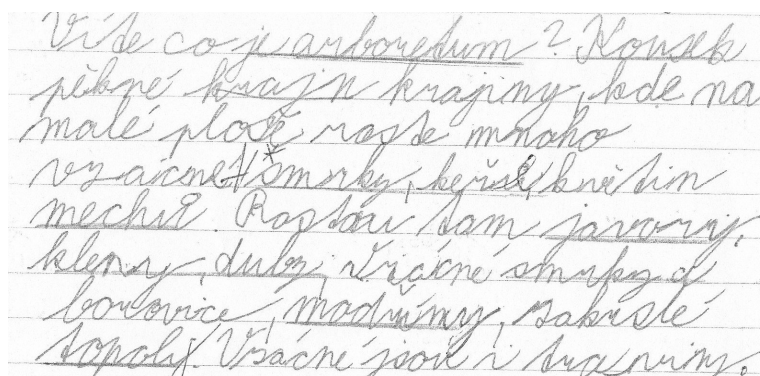 Víte co je arboretum? Kousek
pěkné krajn krajiny, kde na
malé ploše roste mnoho
vzácné smrky, keřů, květin
mechů. Rostou tam javory,
kleny, duby, vzácné smrky a
borovice, modříny, zakrslé
topoly. Vzácné jsou i traviny.